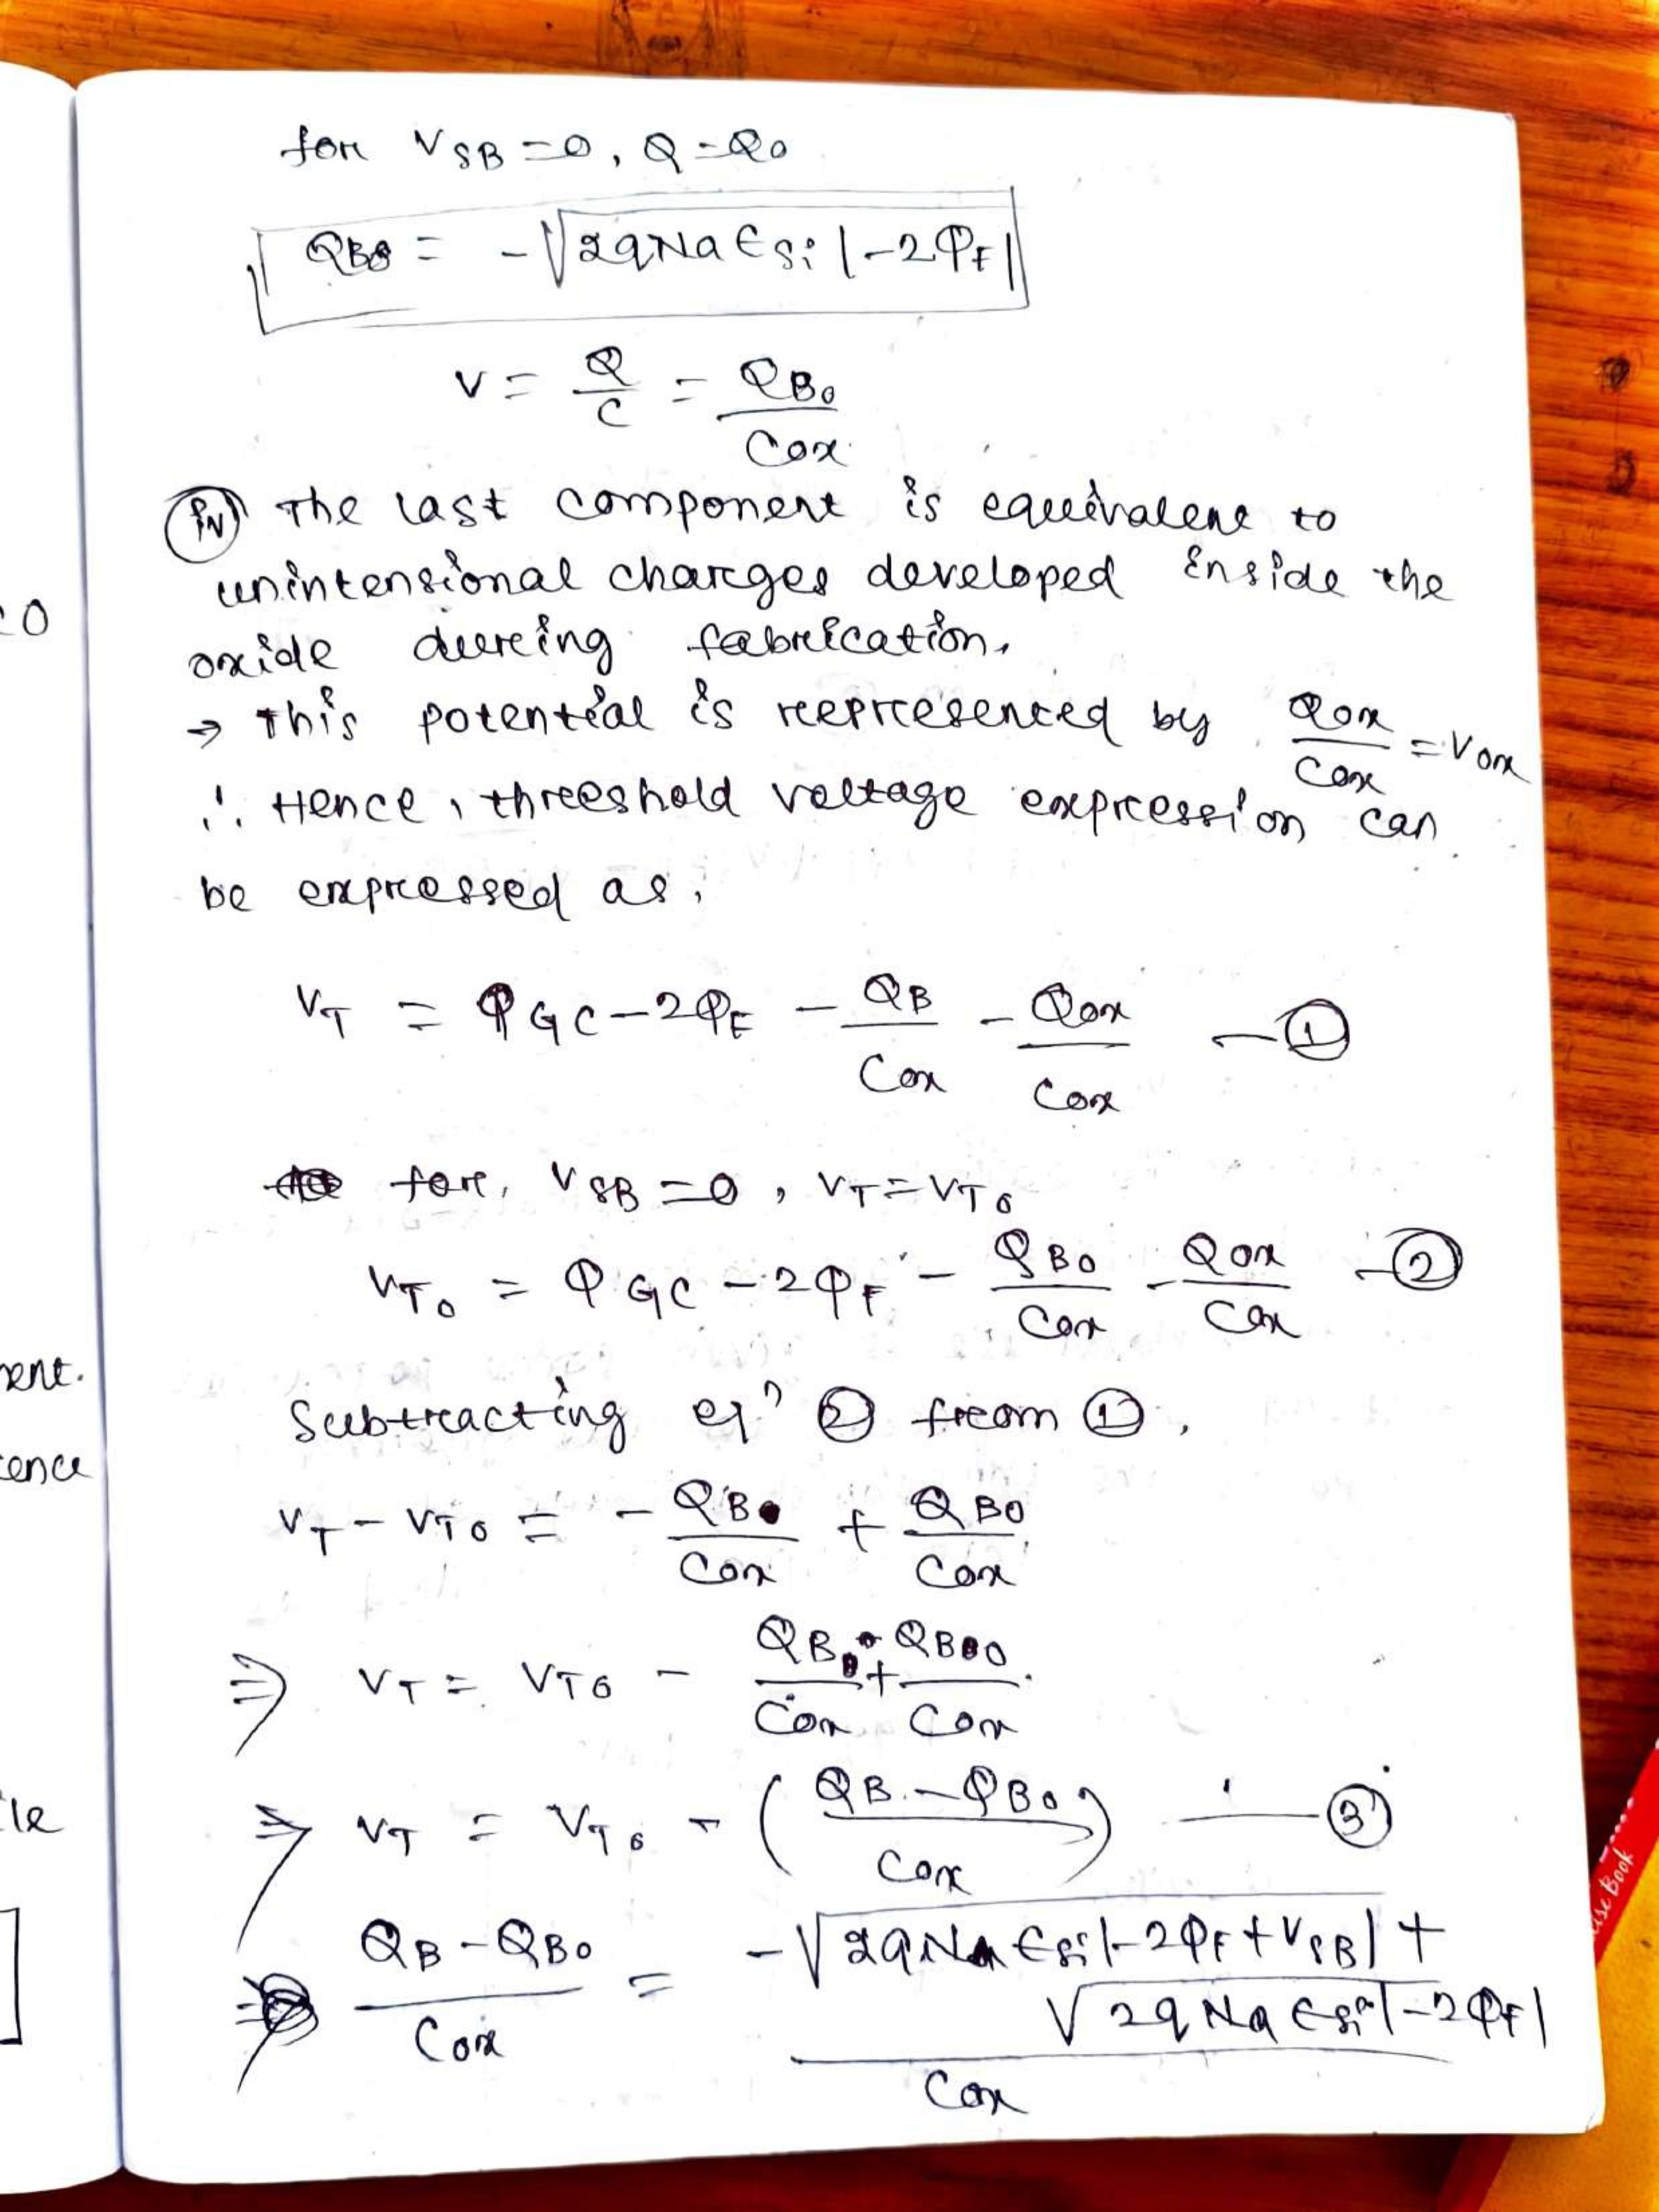 for VSB = 0, Q = Q0
QB0 = -√2qNa ϵsi |-2φF|
V = Q/C = QB0/Cox
(iv) The last component is equivalent to
unintensional charges developed inside the
oxide during fabrication.
→ This potential is represented by Qox/Cox = Vox
∴ Hence, threshold voltage expression can
be expressed as,
VT = φGC - 2φF - QB/Cox - Qox/Cox — ①
for, VSB = 0, VT = VT0
VT0 = φGC - 2φF - QB0/Cox - Qox/Cox — ②
Subtracting eqn ② from ①,
VT - VT0 = - QB/Cox + QB0/Cox
⇒ VT = VT0 - QB/Cox + QB0/Cox
⇒ VT = VT0 - (QB - QB0/Cox) — ③
⇒ QB - QB0/Cox = -√2qNa ϵsi |-2φF + VSB| + √2qNa ϵsi |-2φF| / Cox
0
ent.
ence
le
]
se Book